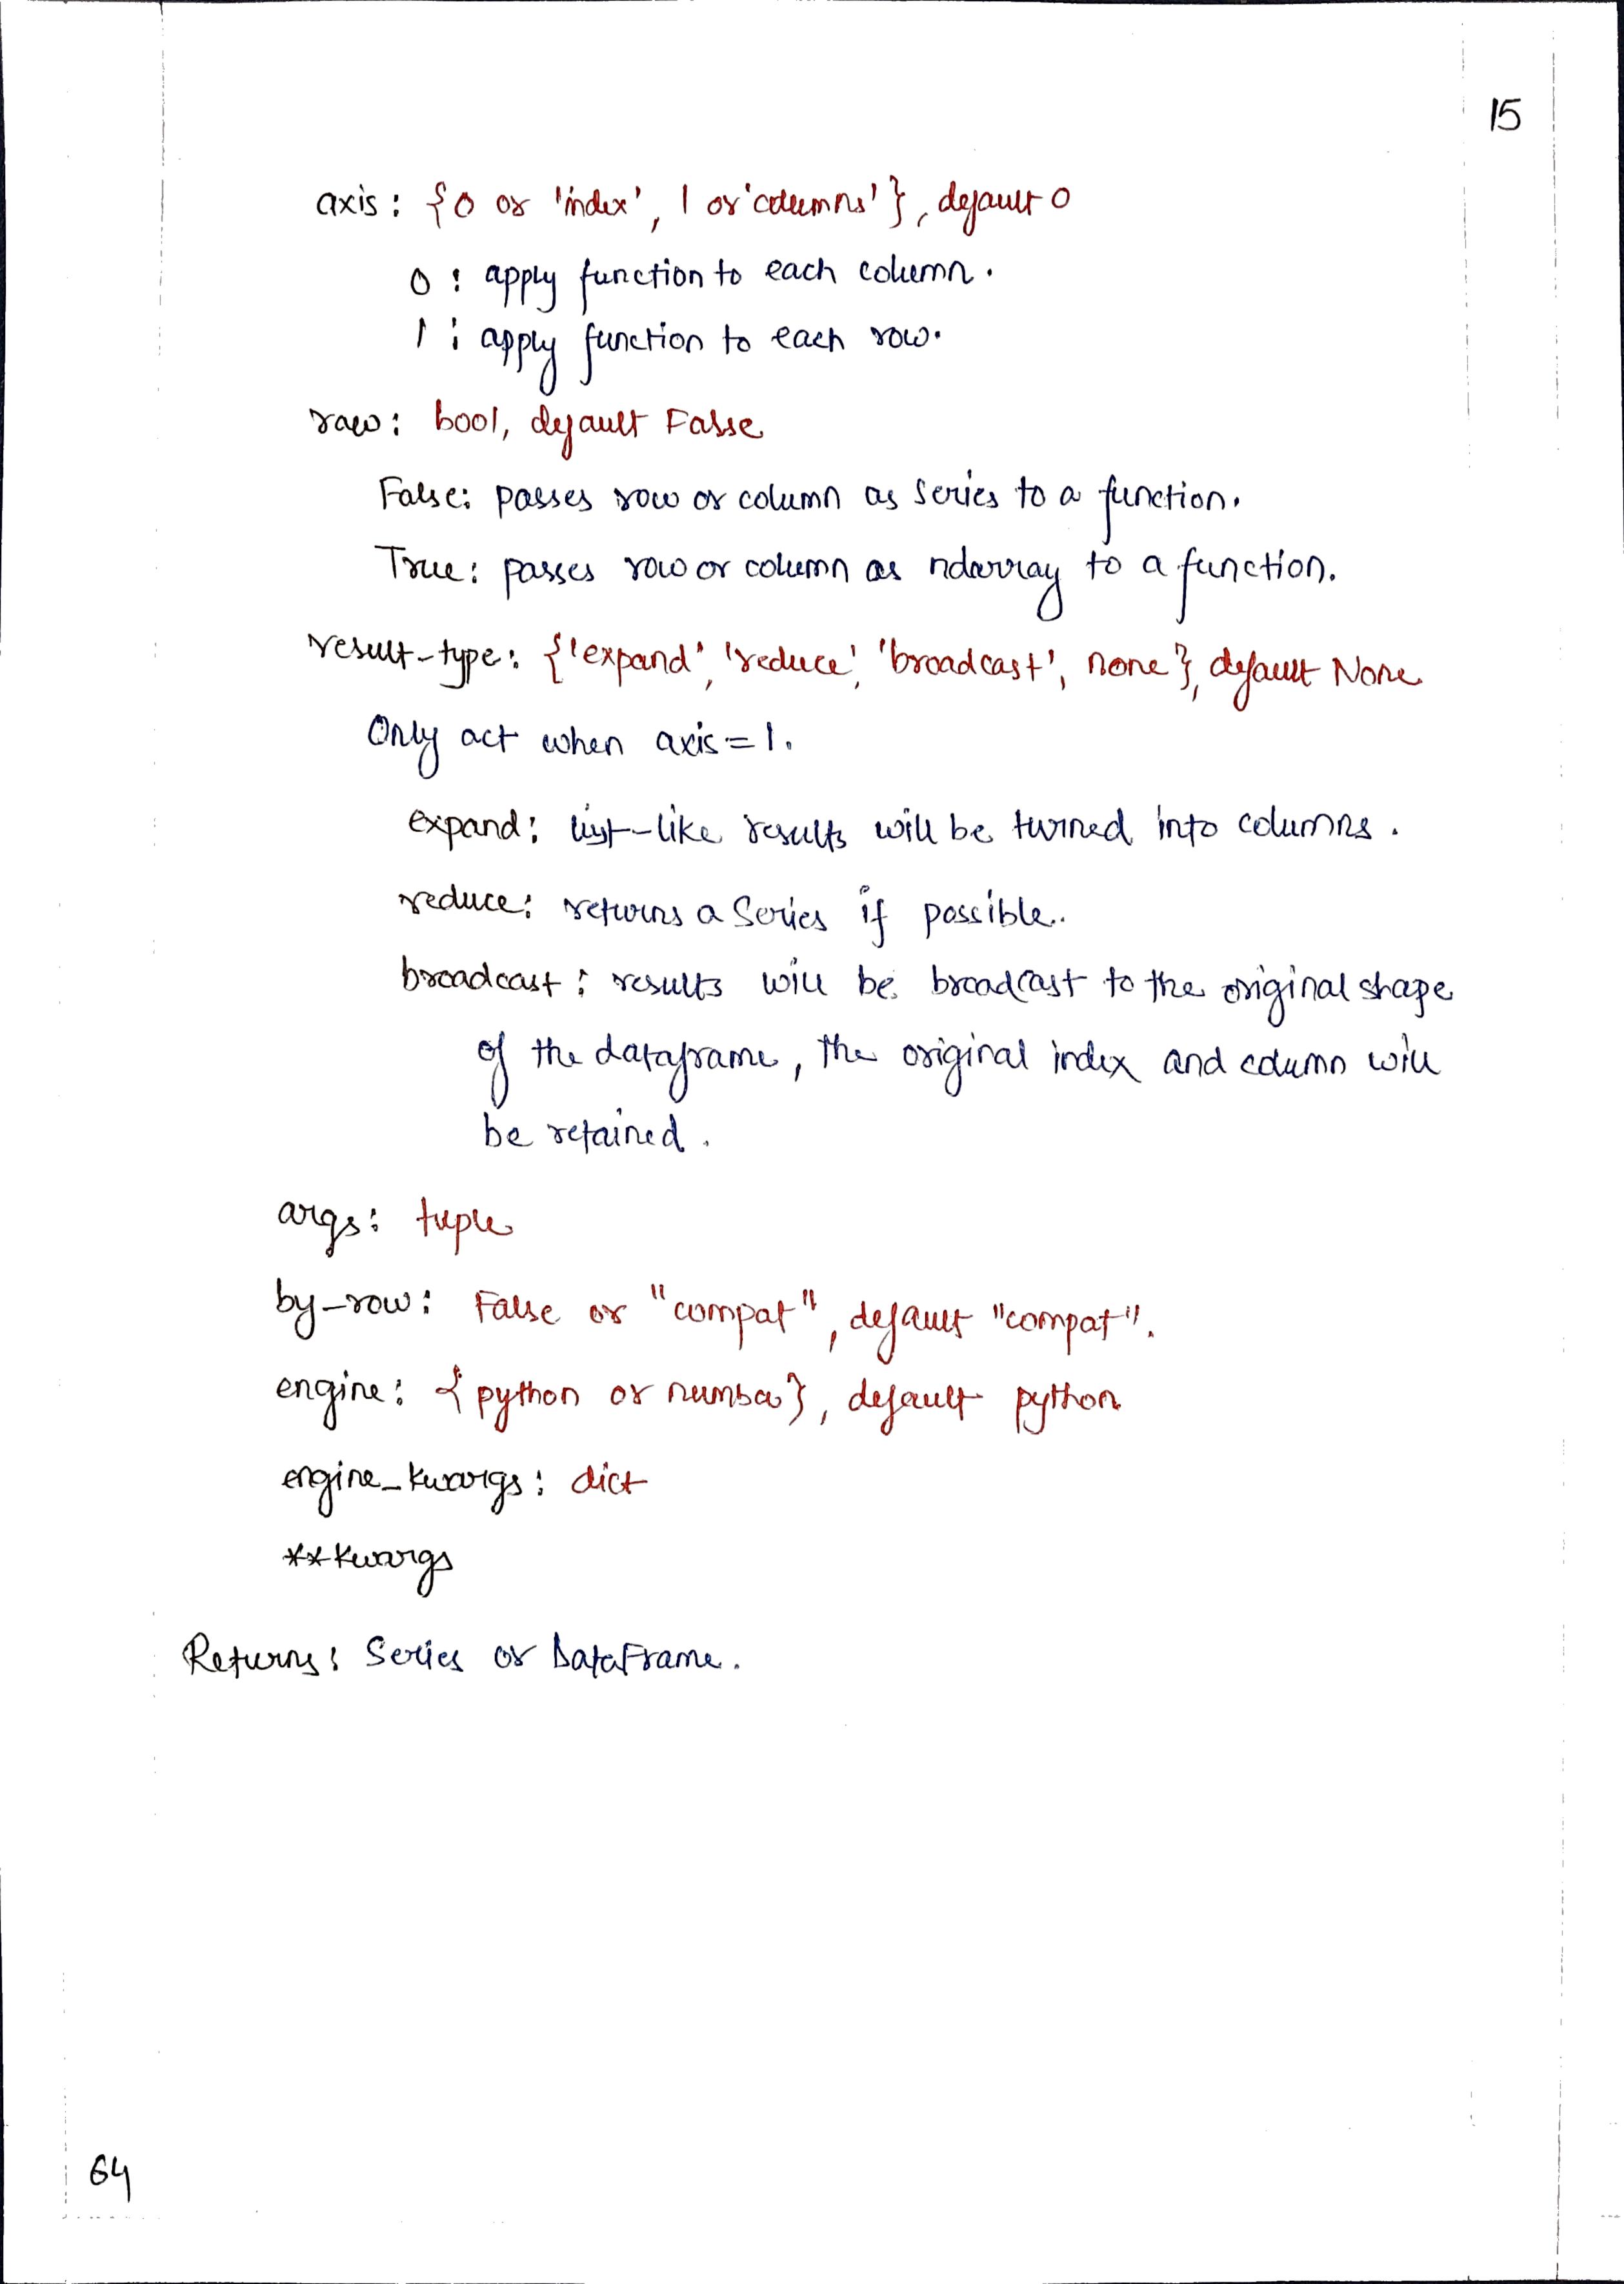 15
axis: {0 or 'index', 1 or 'columns'}, default 0
0: apply function to each column.
1: apply function to each row.
raw: bool, default False
False: passes row or column as series to a function.
True: passes row or column as ndarray to a function.
result-type: {'expand', 'reduce', 'broadcast', none}, default None
Only act when axis=1.
expand: list-like results will be turned into columns.
reduce: returns a Series if possible.
broadcast: results will be broadcast to the original shape
of the dataframe, the original index and column will
be retained.
args: tuple
by-row: False or "compat", default "compat".
engine: {python or numba}, default python
engine_kwargs: dict
**kwargs
Returns: Series or DataFrame.
64